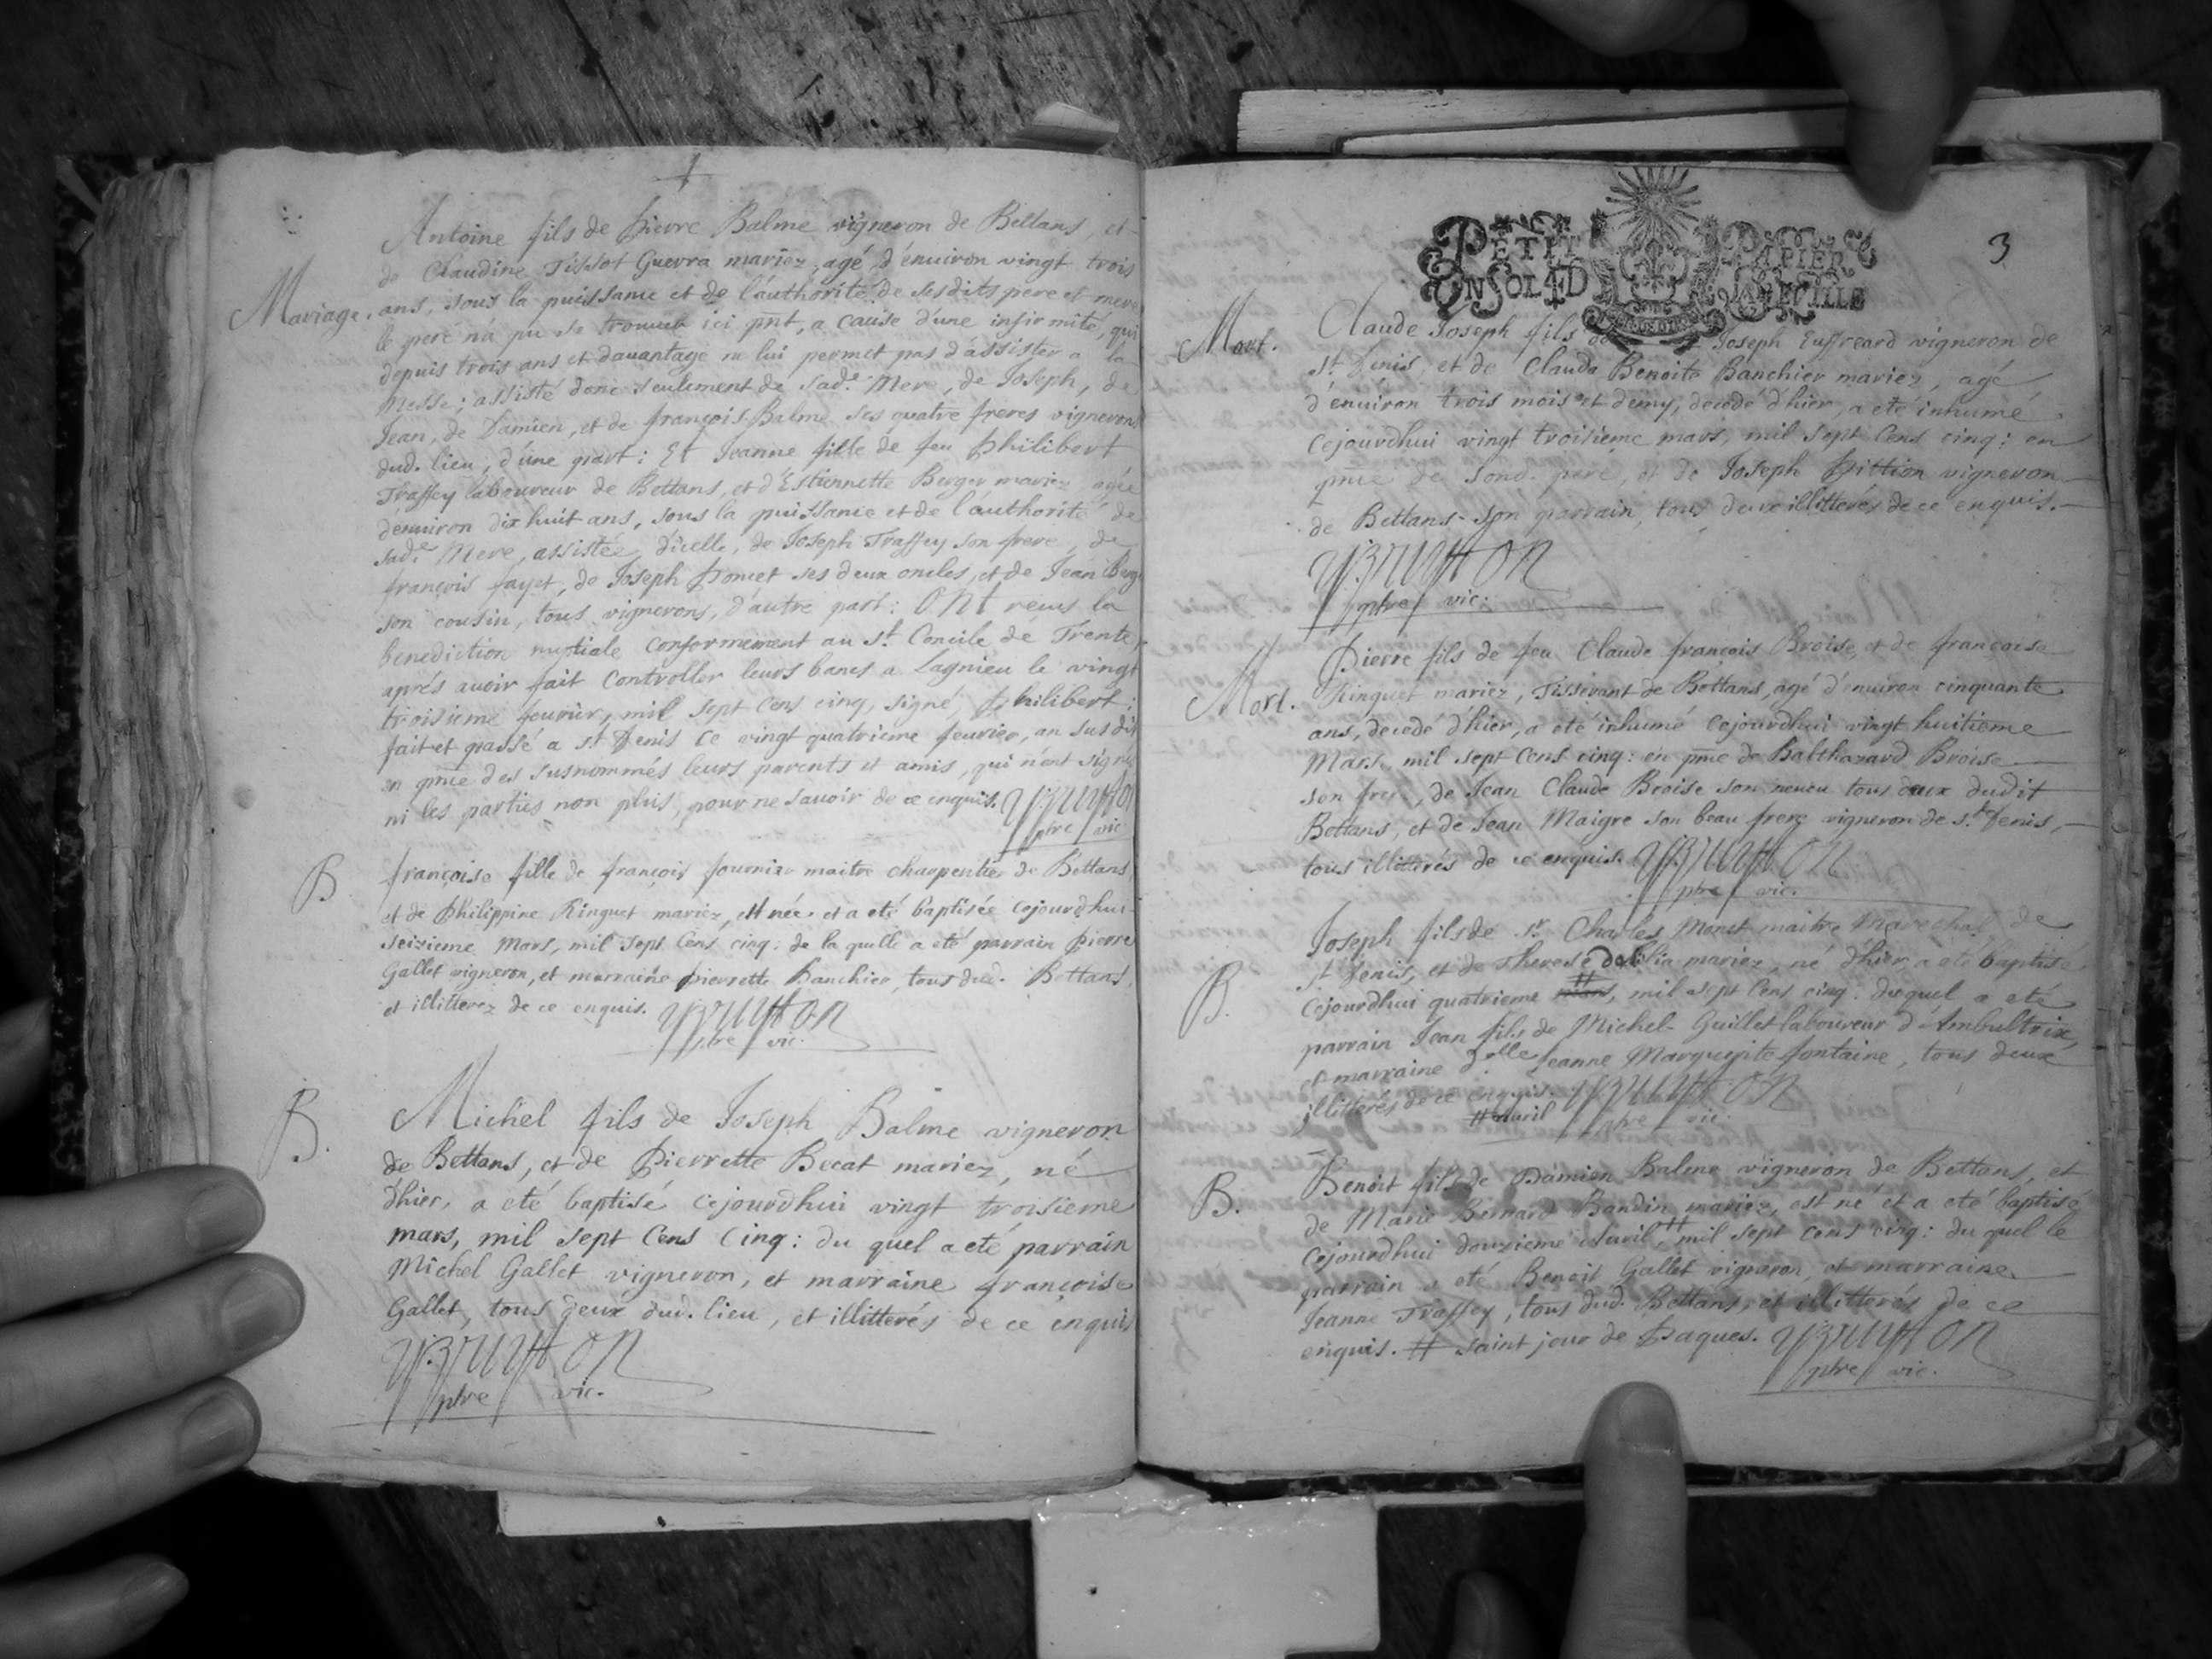 Antoine fils de Pierre Balme vigneron de Bettans, et
de Claudine Tissot Guerra mariez, agé d'enuiron vingt trois
Mariage. ans, sous la puissance et de l'authorité de sesdits pere et mere
le pere n'a pu se trouuer ici pnt, a cause d'une infirmité, qui
depuis trois ans et dauantage ne lui permet pas d'assister a la
Messe; assisté donc seulement de sade. Mere, de Joseph, de
Jean, de Damien, et de françois Balme ses quatre freres vignerons
dud. lieu, d'une part: Et Jeanne fille de feu Philibert
Traffey laboureur de Bettans, et d'Estiennette Berger mariez, agée
d'enuiron dix huit ans, sous la puissance et de l'authorité de
sade. Mere, assistée d'icelle, de Joseph Traffey son frere, de
françois fayet, de Joseph Poncet ses deux oncles, et de Jean Berg
son cousin, tous vignerons, d'autre part: Ont reçus la
benediction nuptiale conformement au st. Concile de Trente,
aprés auoir fait controller leurs bancs a Lagnieu le vingt
troisieme feurier, mil sept cens cinq, signé, Philibert;
fait et passé a st. Denis ce vingt quatrieme feurier, an susdit
en pnce des susnommés leurs parents et amis, qui n'ont signés
ni les parties non plus, pour ne sauoir de ce enquis.
ptre vic
B. françoise fille de françois fournier maitre charpentier de Bettans,
et de Philippine Ringuet mariez, est née et a eté baptisée cejourdhui
seizieme mars, mil sept cens cinq: de la quelle a eté parrain Pierre
Gallet vigneron, et marraine pierrette Banchier, tous dud. Bettans,
et illitterez de ce enquis.
ptre vic.
B. Michel fils de Joseph Balme vigneron
de Bettans, et de Pierrette Becat mariez, né
d'hier, a eté baptisé cejourdhui vingt troisieme
mars, mil sept cens cinq: du quel a eté parrain
Michel Gallet vigneron, et marraine françoise
Gallet, tous deux dud. lieu, et illitterés de ce enquis
ptre vic.
3
PETIT PAPIER
EN SOL 4 D LA FEUILLE
Mort. Claude Joseph fils de Joseph Euffreard vigneron de
st. Denis, et de Clauda Benoite Banchier mariez, agé
d'enuiron trois mois et demy, decedé d'hier, a eté inhumé
cejourdhui vingt troisieme mars, mil sept cens cinq: en
pnce de sond. pere, et de Joseph Pittion vigneron
de Bettans son parrain, tous deux illitterés de ce enquis.
ptre vic.
Pierre fils de feu Claude françois Broise, et de françoise
Mort. Ringuet mariez, Tisserant de Bettans, agé d'enuiron cinquante
ans, decedé d'hier, a eté inhumé cejourdhui vingt huitieme
Mars, mil sept cens cinq: en pnce de Balthazard Broise
son frere, de Jean Claude Broise son neueu tous deux dudit
Bettans, et de Jean Maigre son beau frere vigneron de st. Denis,
tous illitterés de ce enquis.
ptre vic.
Joseph fils de sr. Charles Monet maitre Marechal de
B. st. Denis, et de Therese mariez, né d'hier, a eté baptisé
cejourdhui quatrieme # mars, mil sept cens cinq: duquel a eté
parrain Jean fils de Michel Guillet laboureur d'Ambutrix,
et marraine d.elle Jeanne Marguerite fontaine, tous deux
illitterés de ce enquis.
# auril ptre vic.
Benoit fils de Damien Balme vigneron de Bettans, et
B. de Marie Bernard Bandin mariez, est né et a eté baptisé
cejourdhui douzieme Auril, # mil sept cens cinq: du quel le
parrain a eté Benoit Gallet vigneron, et marraine
Jeanne Traffey, tous dud. Bettans, et illitterés de ce
enquis. # saint jour de Paques.
ptre vic.